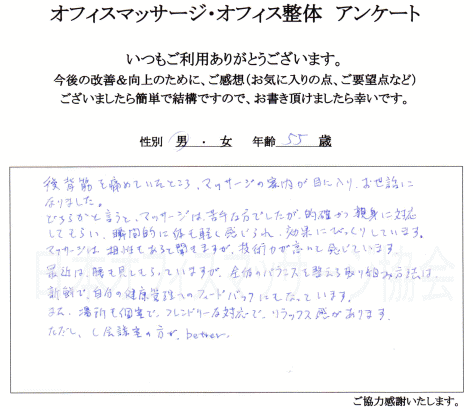 オフィスマッサージ・オフィス整体 アンケート
いつもご利用ありがとうございます。
今後の改善＆向上のために、ご感想（お気に入りの点、ご要望点など）
ございましたら簡単で結構ですので、お書き頂けましたら幸いです。
性別 男 ・ 女 年齢 55 歳
後背筋を痛めていたところ、マッサージの案内が目に入り、お世話に
なりました。
どちらかと言うと、マッサージは、苦手な方でしたが、的確かつ親身に対応
してもらい、瞬間的に体も軽く感じられ、効果にびっくりしています。
マッサージは、相性もあると聞きますが、技術力が高いと感じています。
最近は、腰も見てもらっていますが、全体のバランスを整える取り組み方法は
新鮮で、自分の健康管理へのフィードバックにもなっています。
また、場所も個室で、フレンドリーな対応で、リラックス感があります。
ただし、L会議室の方が、better.
日本オフィスマッサージ協会
ご協力感謝いたします。